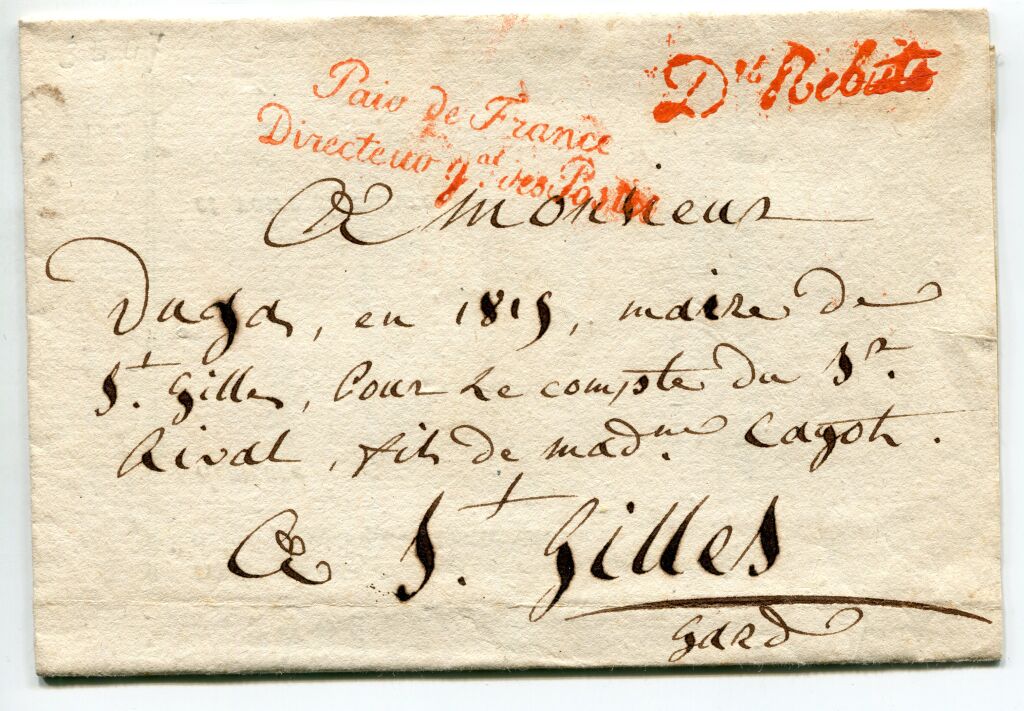 Dᵗ Rebuts
Pair de France
Directeur gᵃˡ des Postes
A Monsieur
Dugas, en 1815, maire de
Sᵗ. Gilles, Pour Le compte du Sʳ.
Rival, fils de madᵐᵉ. Cagot.
A Sᵗ. Gilles
Gard